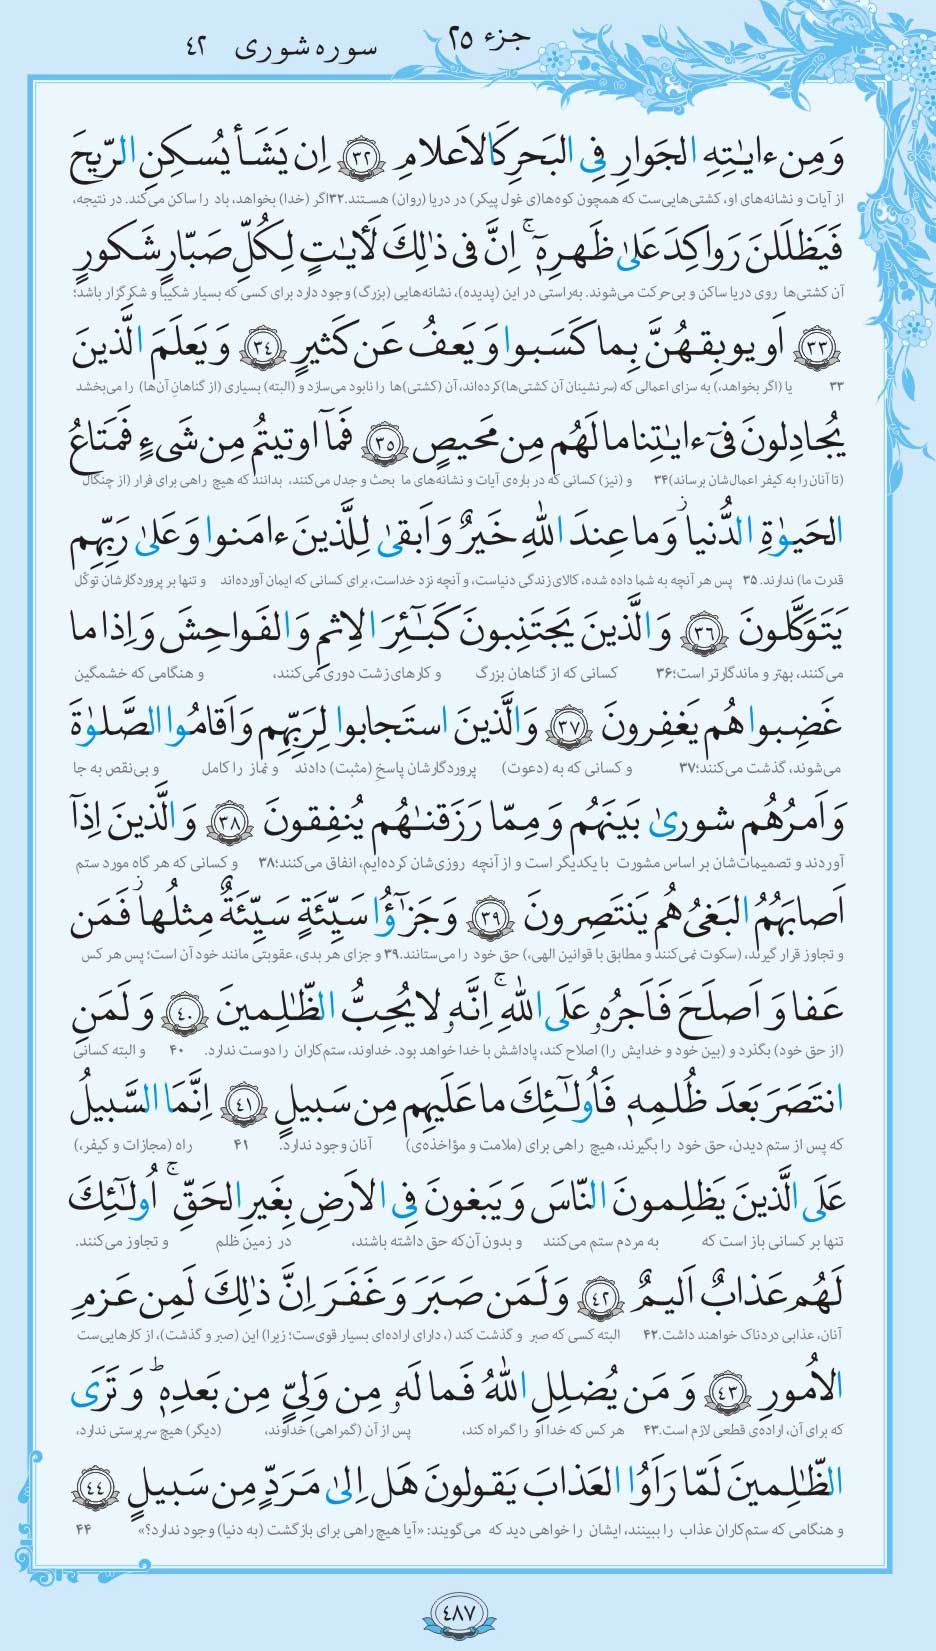 جزء ۲۵
سوره شوری ۴۲
وَ مِن ءایٰتِهِ الجَوارِ فِی البَحرِ کَالاَعلامِ ﴿۳۲﴾ اِن یَشَأ یُسکِنِ الرّیحَ
از آیات و نشانه‌های او، کشتی‌هایی‌ست که همچون کوه‌ها(ی غول پیکر) در دریا (روان) هستند.۳۲ اگر (خدا) بخواهد، باد را ساکن می‌کند. در نتیجه،
فَیَظلَلنَ رَواکِدَ عَلیٰ ظَهرِهٖٓ ۚ اِنَّ فی ذٰلِكَ لَأیاتٍ لِکُلِّ صَبّارٍ شَکورٍ
آن کشتی‌ها روی دریا ساکن و بی‌حرکت می‌شوند. به‌راستی در این (پدیده)، نشانه‌هایی (بزرگ) وجود دارد برای کسی که بسیار شکیبا و شکرگزار باشد؛
﴿۳۳﴾ اَو یوبِقهُنَّ بِما کَسَبوا وَ یَعفُ عَن کَثیرٍ ﴿۳۴﴾ وَ یَعلَمَ الَّذینَ
۳۳ یا (اگر بخواهد،) به سزای اعمالی که (سرنشینان آن کشتی‌ها) کرده‌اند، آن (کشتی)ها را نابود می‌سازد و (البته) بسیاری (از گناهانِ آن‌ها) را می‌بخشد
یُجادِلونَ فیٓ ءایٰتِنا ما لَهُم مِن مَحیصٍ ﴿۳۵﴾ فَمآ اوتیتُم مِن شَیءٍ فَمَتاعُ
(تا آنان را به کیفر اعمال‌شان برساند)۳۴ و (نیز) کسانی که در باره‌ی آیات و نشانه‌های ما بحث و جدل می‌کنند، بدانند که هیچ راهی برای فرار (از چنگال
الحَیوٰةِ الدُّنیا ۖ وَ ما عِندَ اللهِ خَیرٌ وَ اَبقیٰ لِلَّذینَ ءامَنوا وَ عَلیٰ رَبِّهِم
قدرت ما) ندارند. ۳۵ پس هر آنچه به شما داده شده، کالای زندگی دنیاست، و آنچه نزد خداست، برای کسانی که ایمان آورده‌اند و تنها بر پروردگارشان توکّل
یَتَوَکَّلونَ ﴿۳۶﴾ وَ الَّذینَ یَجتَنِبونَ کَبٰٓئِرَ الاِثمِ وَ الفَواحِشَ وَ اِذا ما
می‌کنند، بهتر و ماندگارتر است؛۳۶ کسانی که از گناهان بزرگ و کارهای زشت دوری می‌کنند، و هنگامی که خشمگین
غَضِبوا هُم یَغفِرونَ ﴿۳۷﴾ وَ الَّذینَ استَجابوا لِرَبِّهِم وَ اَقامُوا الصَّلوٰةَ
می‌شوند، گذشت می‌کنند؛۳۷ و کسانی که به (دعوت) پروردگارشان پاسخ (مثبت) دادند و نماز را کامل و بی‌نقص به جا
وَ اَمرُهُم شوریٰ بَینَهُم وَ مِمّا رَزَقنٰهُم یُنفِقونَ ﴿۳۸﴾ وَ الَّذینَ اِذآ
آوردند و تصمیمات‌شان بر اساس مشورت با یکدیگر است و از آنچه روزی‌شان کرده‌ایم، انفاق می‌کنند؛۳۸ و کسانی که هر گاه مورد ستم
اَصابَهُمُ البَغیُ هُم یَنتَصِرونَ ﴿۳۹﴾ وَ جَزٰٓؤُا سَیِّئَةٍ سَیِّئَةٌ مِثلُها ۖ فَمَن
و تجاوز قرار گیرند، (سکوت نمی‌کنند و مطابق با قوانین الهی،) حق خود را می‌ستانند.۳۹ و جزای هر بدی، عقوبتی مانند خود آن است؛ پس هر کس
عَفا وَ اَصلَحَ فَاَجرُهٗ عَلَی اللهِ ۚ اِنَّهٗ لا یُحِبُّ الظّٰلِمینَ ﴿۴۰﴾ وَ لَمَنِ
(از حق خود) بگذرد و (بین خود و خدایش را) اصلاح کند، پاداشش با خدا خواهد بود. خداوند، ستم‌کاران را دوست ندارد. ۴۰ و البته کسانی
انتَصَرَ بَعدَ ظُلمِهٖ فَاُولٰٓئِكَ ما عَلَیهِم مِن سَبیلٍ ﴿۴۱﴾ اِنَّمَا السَّبیلُ
که پس از ستم دیدن، حق خود را بگیرند، هیچ راهی برای (ملامت و مؤاخذه‌ی) آنان وجود ندارد. ۴۱ راه (مجازات و کیفر،)
عَلَی الَّذینَ یَظلِمونَ النّاسَ وَ یَبغونَ فِی الاَرضِ بِغَیرِ الحَقِّ ۚ اُولٰٓئِكَ
تنها بر کسانی باز است که به مردم ستم می‌کنند و بدون آن‌که حق داشته باشند، در زمین ظلم و تجاوز می‌کنند.
لَهُم عَذابٌ اَلیمٌ ﴿۴۲﴾ وَ لَمَن صَبَرَ وَ غَفَرَ اِنَّ ذٰلِكَ لَمِن عَزمِ
آنان، عذابی دردناک خواهند داشت.۴۲ البته کسی که صبر و گذشت کند (، دارای اراده‌ای بسیار قوی‌ست؛ زیرا) این (صبر و گذشت)، از کارهایی‌ست
الاُمورِ ﴿۴۳﴾ وَ مَن یُضلِلِ اللهُ فَما لَهٗ مِن وَلِیٍّ مِن بَعدِهٖ ۗ وَ تَرَی
که برای آن، اراده‌ی قطعی لازم است.۴۳ هر کس که خدا او را گمراه کند، پس از آن (گمراهی) خداوند، (دیگر) هیچ سرپرستی ندارد،
الظّٰلِمینَ لَمّا رَاَوُا العَذابَ یَقولونَ هَل اِلیٰ مَرَدٍّ مِن سَبیلٍ ﴿۴۴﴾
و هنگامی که ستم‌کاران عذاب را ببینند، ایشان را خواهی دید که می‌گویند: «آیا هیچ راهی برای بازگشت (به دنیا) وجود ندارد؟» ۴۴
۴۸۷